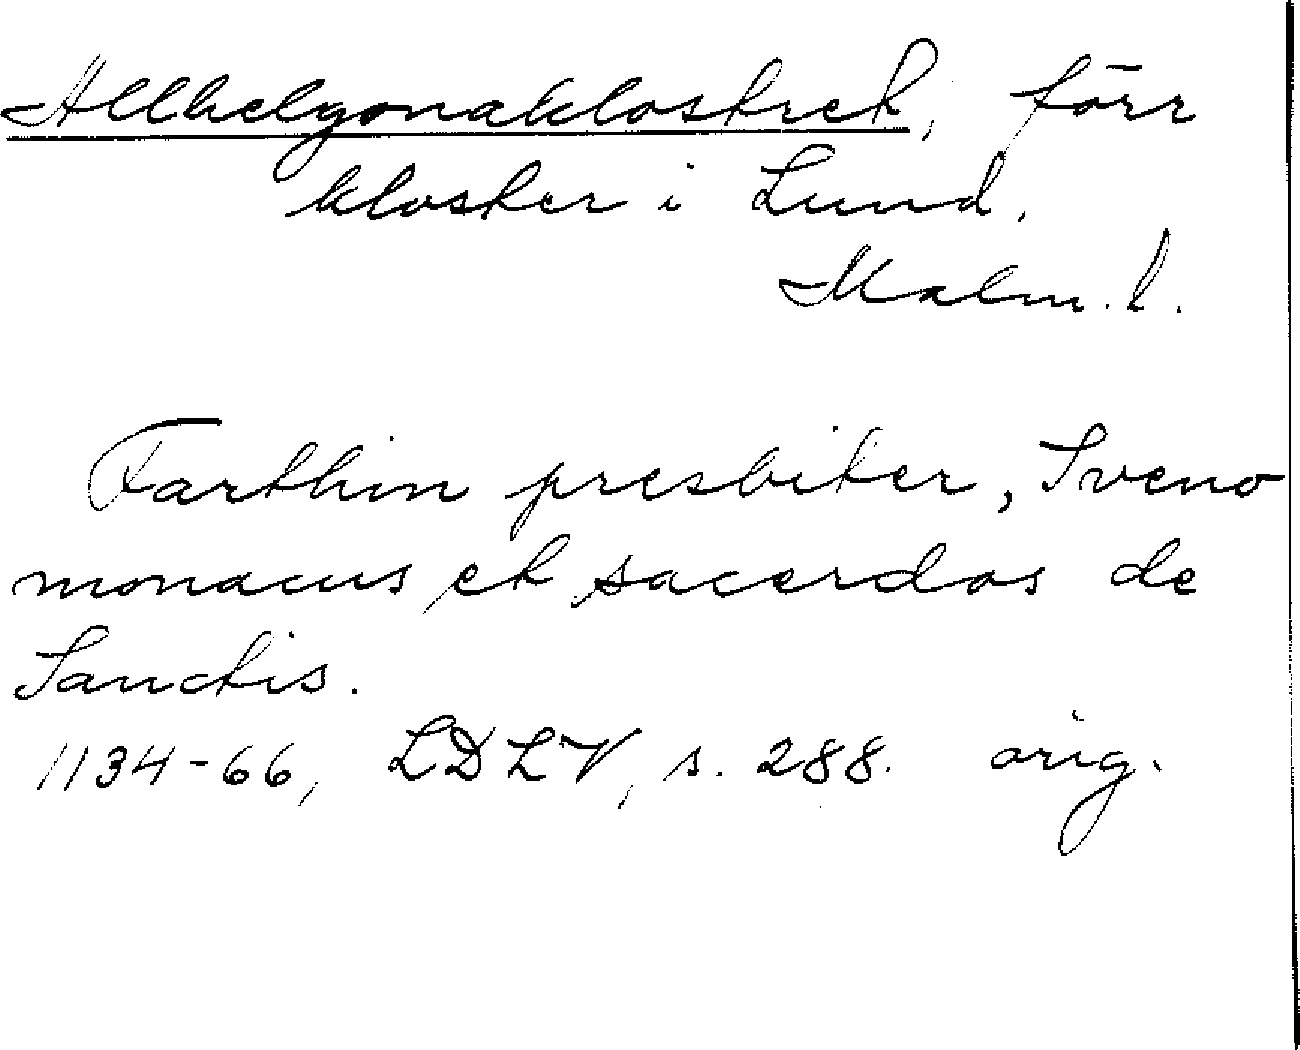 Allhelgonaklostret, förr
kloster i Lund.
Malm. l.
Farthin presbiter, Sveno
monacus et sacerdos de
Sanctis.
1134-66, LDLV, s. 288. orig.